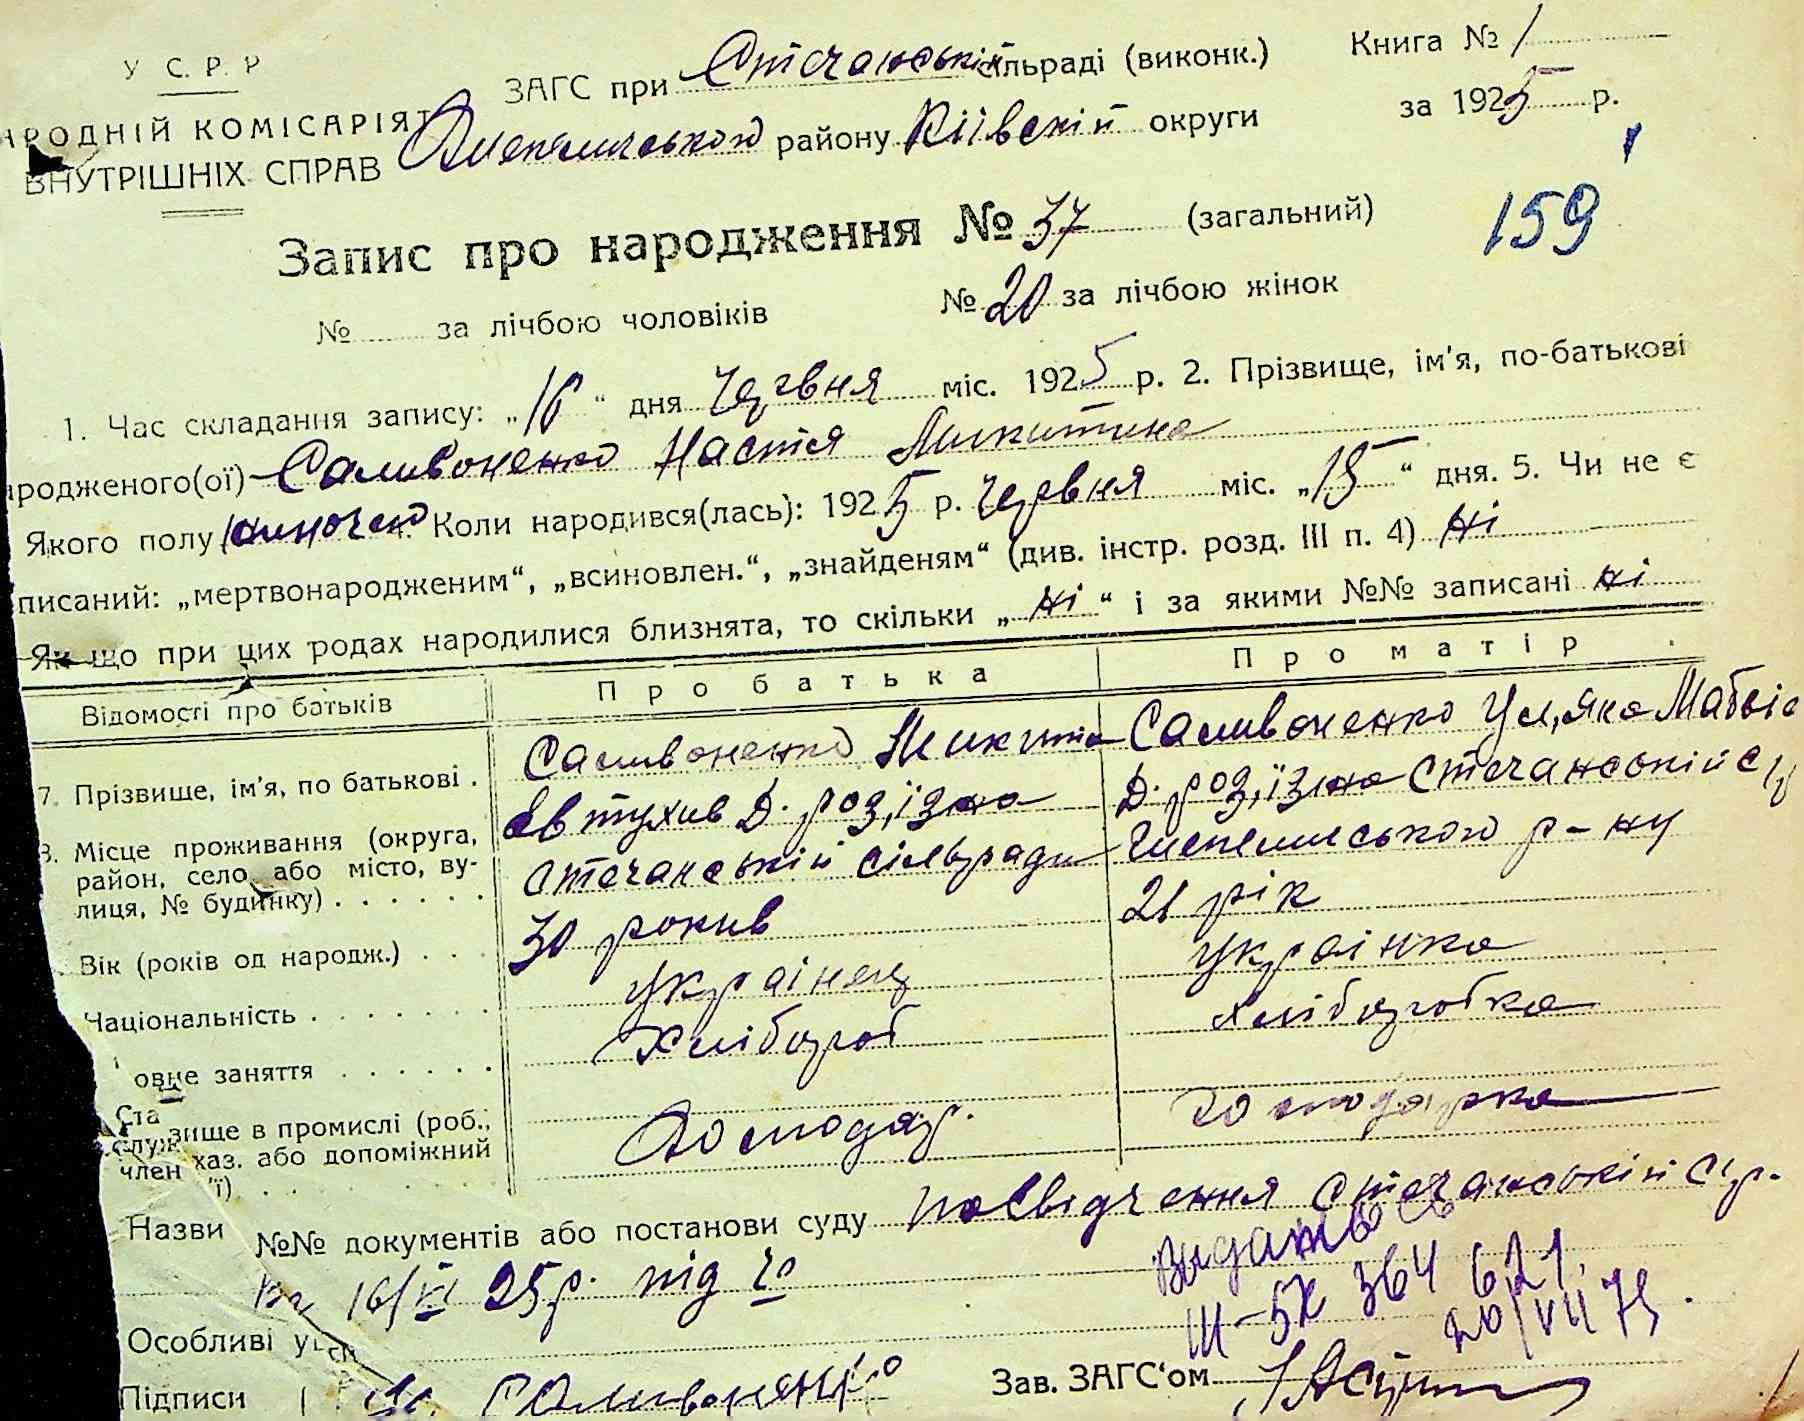 У С. Р. Р
ЗАГС при Стечанській сільраді (виконк.) Книга № 1
НАРОДНІЙ КОМІСАРІЯТ
ВНУТРІШНІХ СПРАВ району Київский округи за 1925 р.
159
Запис про народження № 37 (загальний)
№ за лічбою чоловіків № 20 за лічбою жінок
1. Час складання запису: „16“ дня червня міс. 1925 р. 2. Прізвище, ім'я, по-батькові
народженого(ої) Саливоненко Настя Микитина
Якого полу жиночею 4. Коли народився(лась): 1925 р. червня міс. „15“ дня. 5. Чи не є
писаний: „мертвонародженим“, „всиновлен.“, „знайденям“ (див. інстр. розд. III п. 4) ні
Як що при цих родах народилися близнята, то скільки „ні“ і за якими №№ записані ні
Відомості про батьків Про батька Про матір
7. Прізвище, ім'я, по батькові . Саливоненко Микита Саливоненко Уляна
8. Місце проживання (округа, Явтухив Д. роз,їзжа Д. роз,їзжа Стечанській с/р
район, село або місто, ву- Стечанській сільради р-ну
лиця, № будинку) . . . . . .
Вік (років од народж.) . . . 30 рокив 21 рік
Національність . . . . . . . українец українка
овне заняття . . . . . . Хлібороб хліборобка
Ста вище в промислі (роб., Господар. господарка
служ
член хаз. або допоміжний
ї) . . . . . . .
Назви №№ документів або постанови суду посвідчення Стечанській с/р.
16/VI 25 р. під
Видано
III-БК 364 621
20/VII 75
Особливі
Підписи Саливоненко Зав. ЗАГС'ом